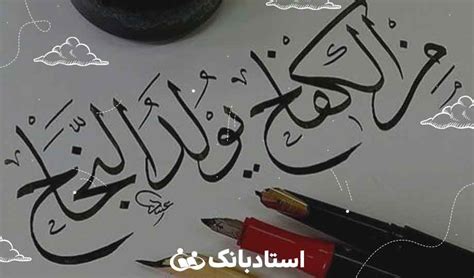 من الكفاح يولد النجاح
استادبانک